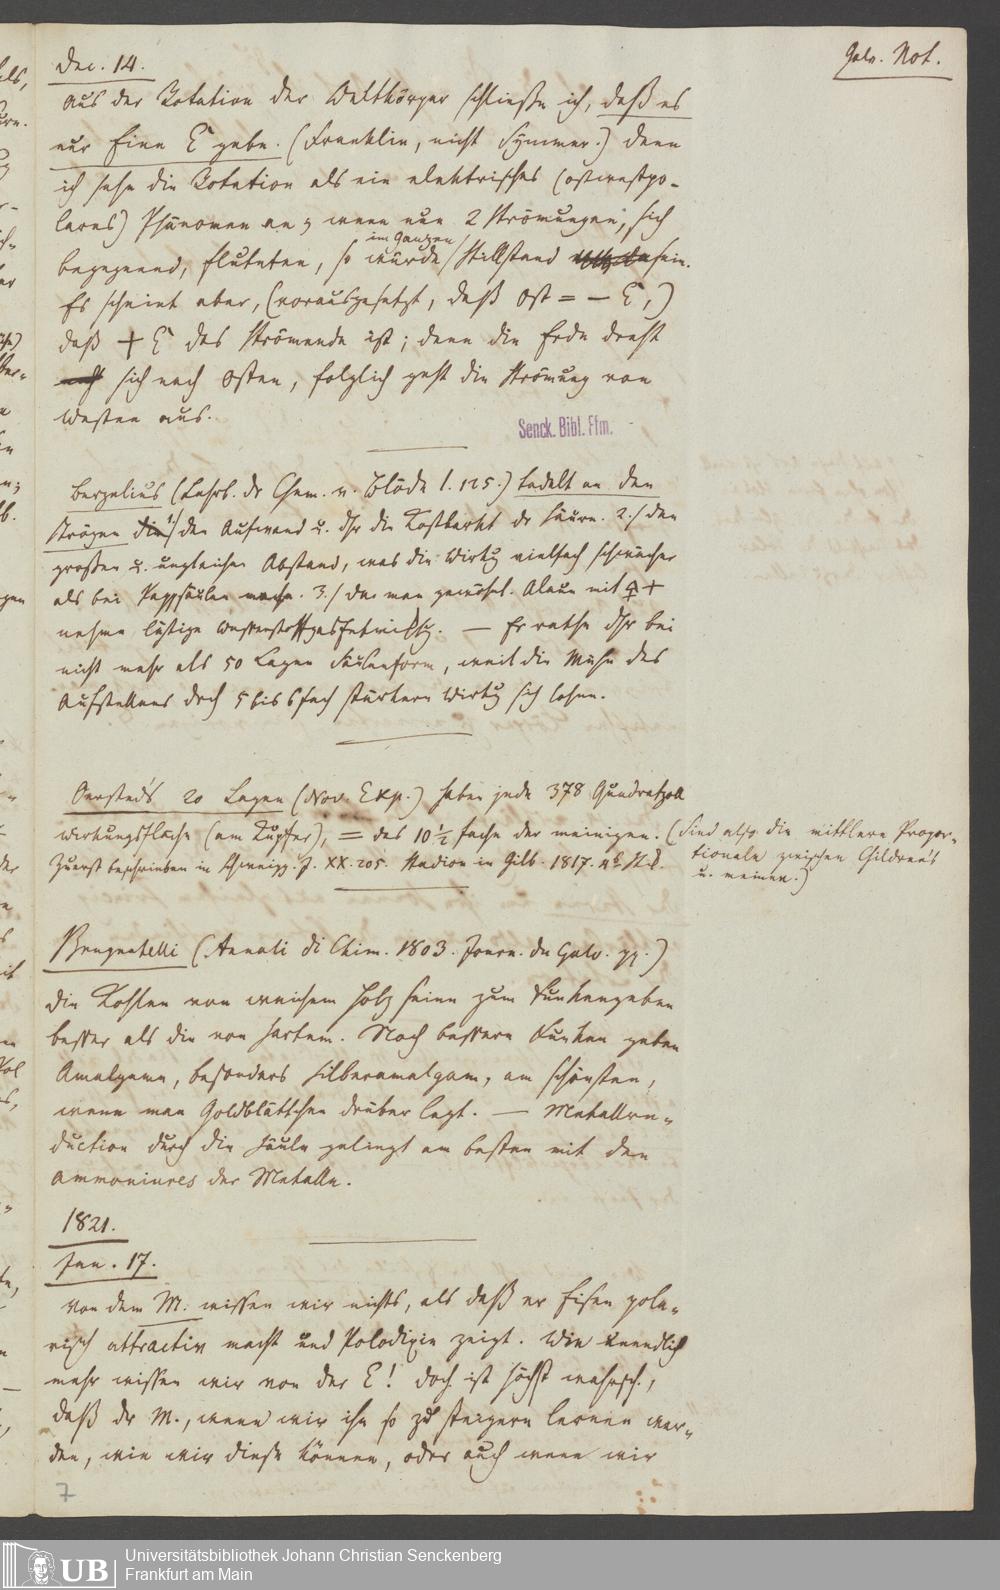 Galv. Not.
Dec. 14.
Aus der Rotation der Weltkörper schließe ich, daß es
nur Eine E gebe. (Franklin, nicht Symmer.) Denn
ich sehe die Rotation als ein elektrisches (ostwestpo-
lares) Phänomen an; wenn nun 2 Strömungen, sich
begegnend, fluteten, so würde im Ganzen Stillstand sein.
Es scheint aber, (vorausgesetzt, daß Ost = – E,)
daß + E das Strömende ist; denn die Erde dreht
sich nach Osten, folglich geht die Strömung von
Westen aus.
Senck. Bibl. Ffm.
Berzelius (Lehrb. dr Chem. v. Blöde 1. 125.) tadelt an den
Trögen 1) den Aufwand u. dhr die Kostbarkt dr Säure. 2.) den
großen u. ungleichen Abstand, was die Wirkg vielfach schwächer
als bei Pappsäulen mache. 3.) das man gewöhnl. Alaun mit ♀ +
nehme lästige Wasserstoffgasentwicklg. — Er rathe dhr bei
nicht mehr als 50 Lagen Säulenform, weil die Mühe des
Aufstellens doch 5 bis 6fach stärkere Wirkg sich lohne.
Oersted's 20 Lagen (Nov. Exp.) haben jede 378 Quadratzoll
Wirkungsfläche (am Kupfer), = das 10 1/2 fache der meinigen. (Sind also die mittlere Propor-
tionale zwischen Children's
u. meinen.)
Zuerst beschrieben in Schweigg. J. XX. 205. Stadion in Gilb. 1817. 4s St.
Brugnatelli (Annali di Chim. 1803. Journ. du Galv. pp.)
Die Kohlen von weichem Holz seien zum Funkengeben
besser als die von hartem. Noch bessere Funken geben
Amalgame, besonders Silberamalgam, am schönsten,
wenn man Goldblättchen drüber legt. — Metallre-
duction durch die Säule gelingt am besten mit den
Ammoniures der Metalle.
1821.
Jan. 17.
Von dem M. wissen wir nichts, als daß er Eisen pola-
risch attractiv macht und Polodixie zeigt. Wie unendlich
mehr wissen wir von der E! Doch ist höchst wahrsch.,
daß dr M., wenn wir ihn so zu steigern lernen wer-
den, wie wir diese können, oder auch wenn wir
7
UB
Universitätsbibliothek Johann Christian Senckenberg
Frankfurt am Main